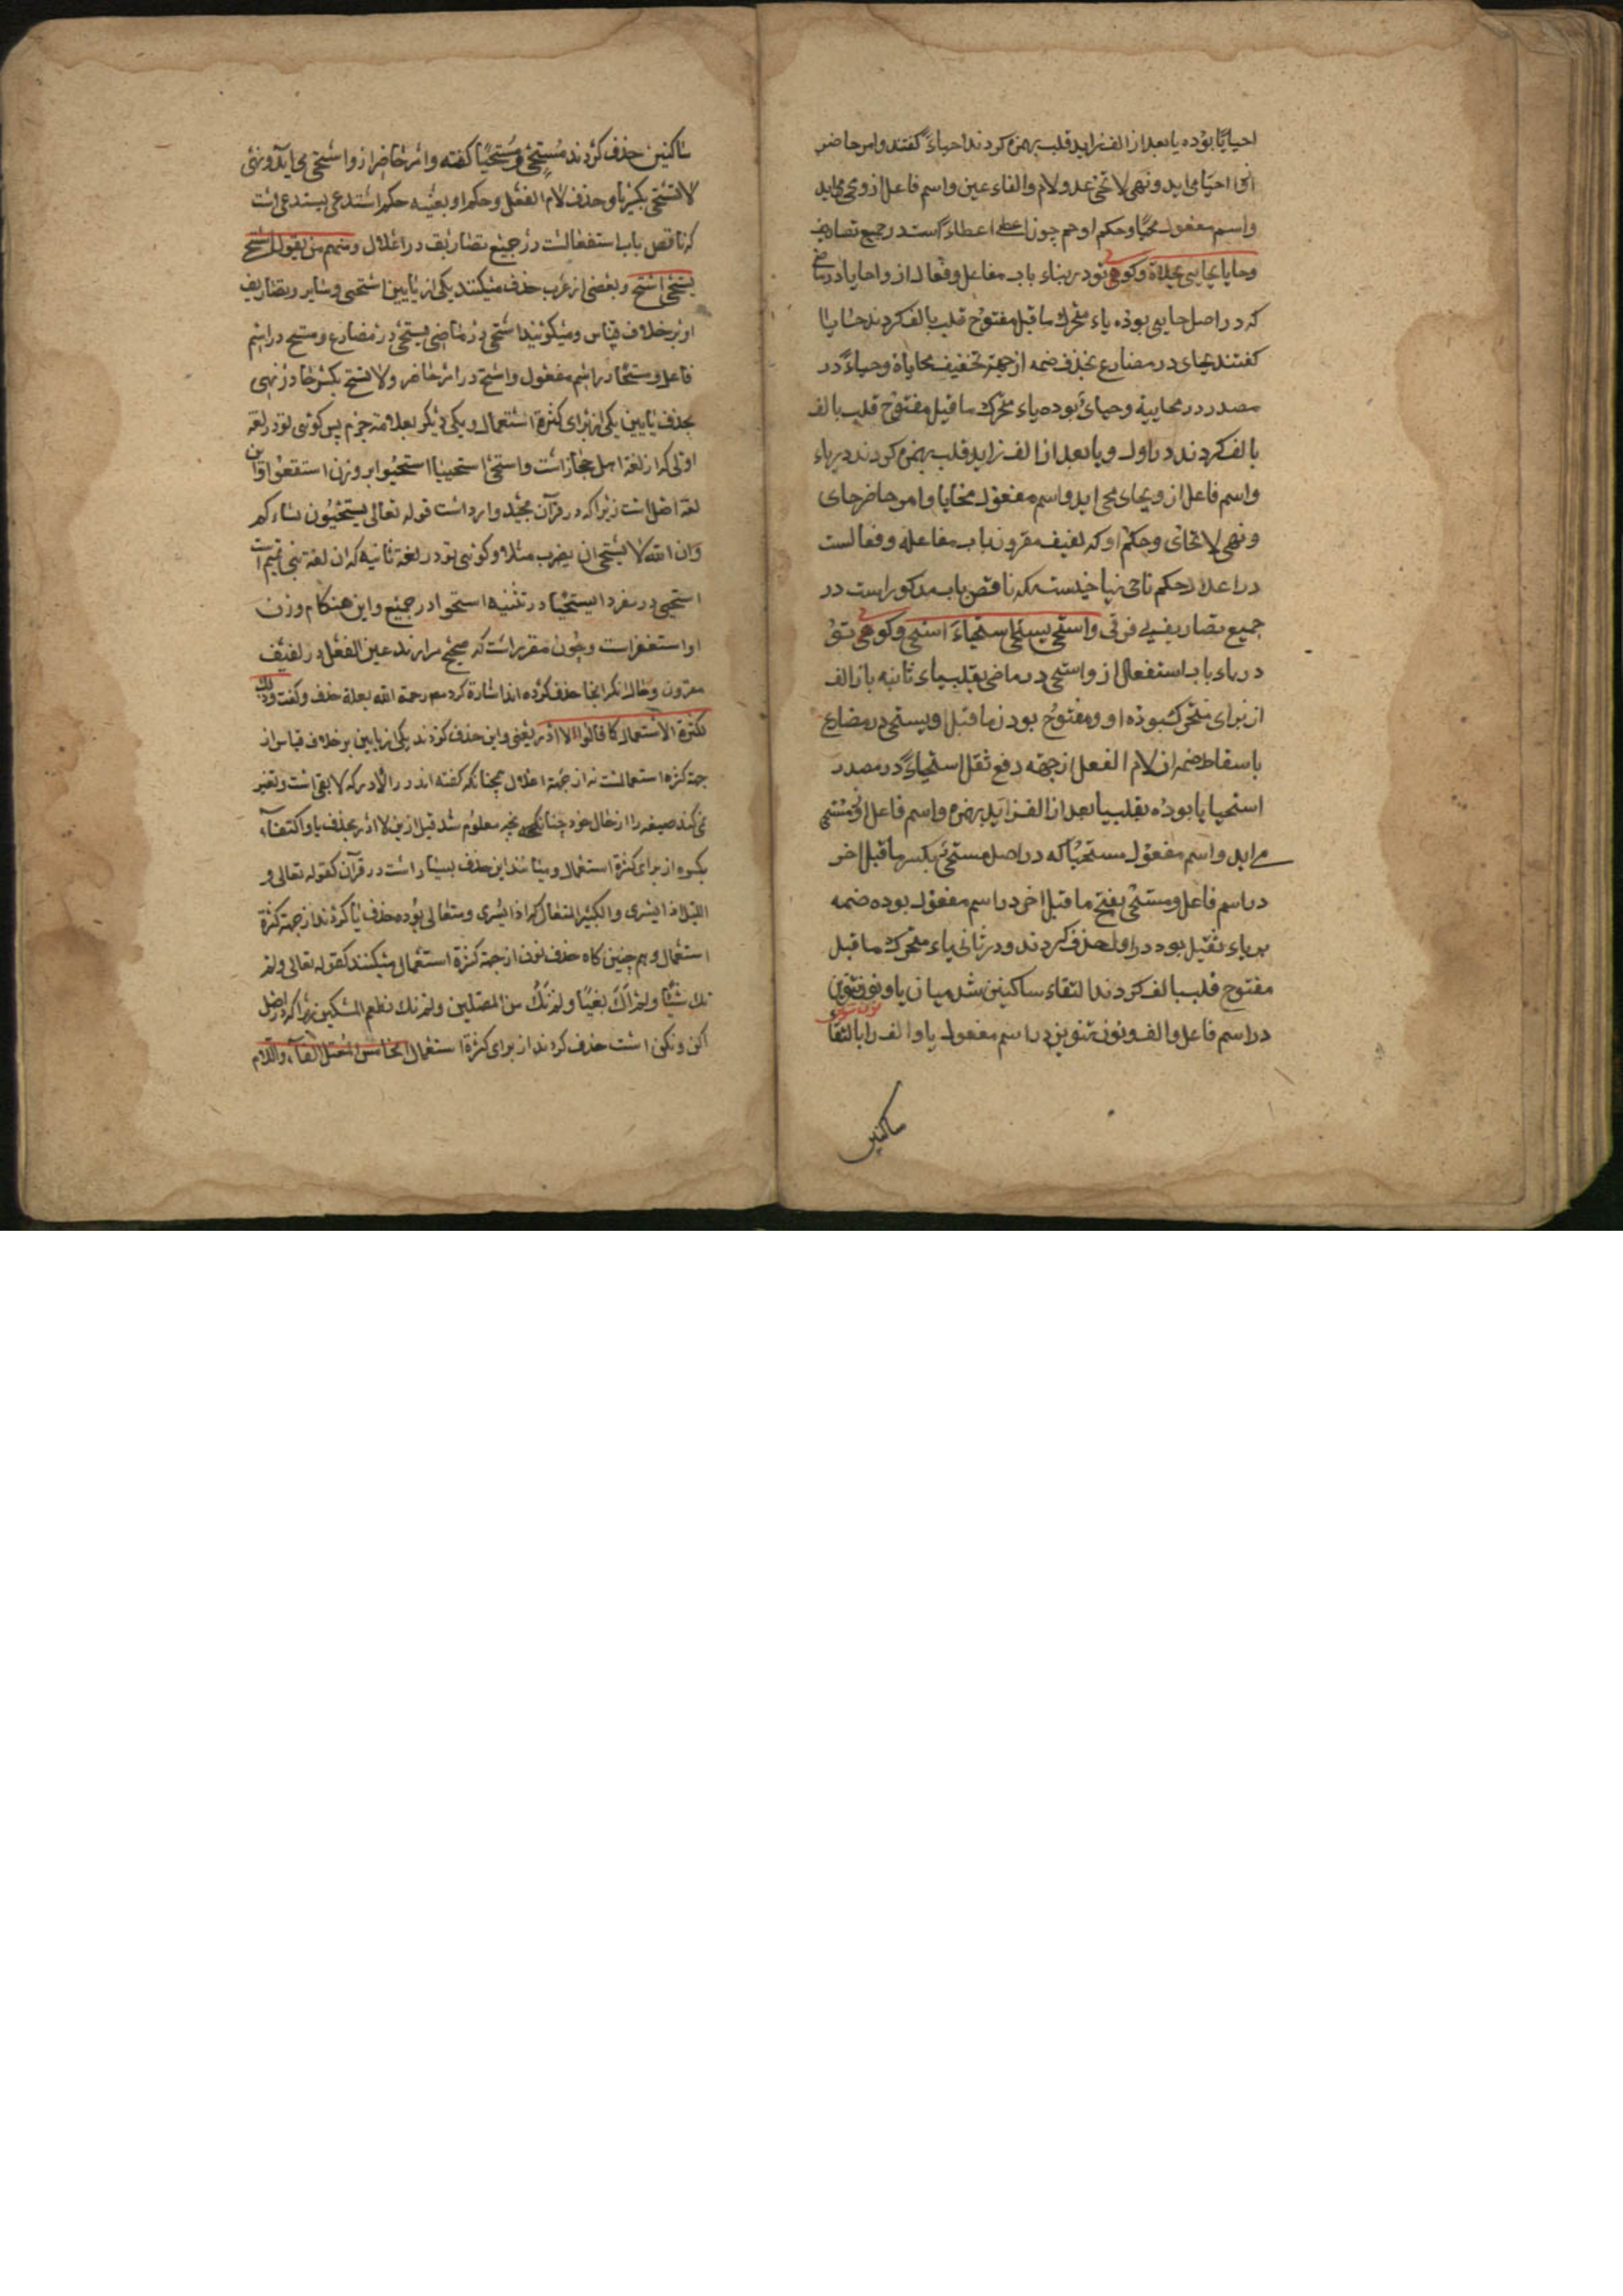 احیایًا بوده یا بعد از الف زاید قلب بهمزه کردند احیاءً گفتند و امر حاضر
احیا می اید و نهی لا تحی عد و لام و الفاء عین و اسم فاعل از وی می اید
و اسم مفعول محیًا و حکم او هم چون اعطی اعطاءً است در جمیع تصاریف
و حایا یحایی محایاة و کوهی تو در بناء باب مفاعل و فعال از و احایا در ماضی
که در اصل حایی بوده یاء متحرک ما قبل مفتوح قلب بالف کردند حایا
گفتند یحای در مضارع بحذف ضمه از جهة تخفیف محایاة و حیاءً در
مصدر در محاییة و حیای بوده یاء متحرک ما قبل مفتوح قلب بالف
بالف کردند در اول و یا بعد از الف زاید قلب بهمزه کردند در یاء
و اسم فاعل از و یحای می اید و اسم مفعول محایا و امر حاضر حای
و نهی لا تحای و حکم او که لفیف مقرون باب مفاعله و فعالست
در اعلال حکم ناجی یناجیست که ناقص باب مذکور است در
جمیع تصاریف بی فرقی و استحی یستحی استحیاءً استحی و کوهی تو
در بناء باب استفعال از و استحی در ماضی بقلب یاء ثانیه بازالف
از برای متحرک بوده او و مفتوح بودن ما قبل او یستحی در مضارع
باسقاط ضمه از لام الفعل از جهة دفع ثقل استحیاءً در مصدر
استحیایا بوده بقلب یا بعد از الف زاید بهمزه و اسم فاعل او مستحی
می اید و اسم مفعول مستحیًا که در اصل مستحیی بکسر ما قبل اخر
در اسم فاعل و مستحیی بفتح ما قبل اخر در اسم مفعول بوده ضمه
بر یاء ثقیل بود در اول حذف کردند و در ثانی یاء متحرک ما قبل
مفتوح قلب بالف کردند التقاء ساکنین شد میان یا و نون تنوین
در اسم فاعل و الف و نون تنوین در اسم مفعول یا و الف را بالتقا
ساکنین
ساکنین حذف کردند مستحی و مستحیًا گفته و امر حاضر از و استحی می آید و نهی
لا تستحی بکسر یا و حذف لام الفعل و حکم او بعینه حکم استدعی یستدعی است
که ناقص باب استفعالست در جمیع تصاریف در اعلال و منهم من یقول استحی
یستحی استح و بعضی از عرب حذف میکنند یکی از یایین استحیی و سایر تصاریف
او بر خلاف قیاس و میگویند استحی در ماضی یستحی در مضارع و مستح در اسم
فاعل و مستحًا در اسم مفعول و استح در امر حاضر و لا تستح بکسر حا در نهی
بحذف یایین یکی از برای کثرة استعمال و یکی دیگر بعلامة جزم پس گویی تو در لغة
اولی که از لغة اهل حجاز است و استحی استحییا استحیوا بر وزن استفعوا و این
لغة اصل است زیرا که در قرآن مجید وارد است قوله تعالی یستحیون نساءکم
و ان الله لا یستحی ان یضرب مثلا و گویی تو در لغة ثانیه که ان لغة بنی تمیم است
استحی در مفرد استحیا در تثنیه استحوا در جمع و این هنکام وزن
او استفعل است و چون مقرر است که صحیح دارند عین الفعل در لفیف
مقرون و حال انکه اینجا حذف کرده اند اشارة کرد مص رحمة الله بعلة حذف و گفت و ذلک
لکثرة الاستعمال کما قالوا لا ادر یعنی و این حذف کردند یکی از یایین بر خلاف قیاس از
جهة کثرة استعمالست نه از جهة اعلال همچنانکه گفته اند در لا ادر که لایق است و تغیر
نمی کند صیغه را از حال خود چنانکه بجزم معلوم شد قبل ازین لا ادر بحذف یا و اکتفاء
بکسره از برای کثرة استعمال و میباشد این حذف بسیار است در قرآن کقوله تعالی و
اللیل اذا یسر و الکبیر المتعال که اذا یسری و متعالی بوده حذف یا کردند از جهة کثرة
استعمال و هم چنین گاه حذف نون از جهة کثرة استعمال میکنند کقوله تعالی و لم
تک شیئًا و لم اک بغیًا و لم نک من المصلین و لم نک نطعم المسکین زیرا که در اصل
اکن و نکن است حذف کردند از برای کثرة استعمال الخامس المعتل الفاء و اللام